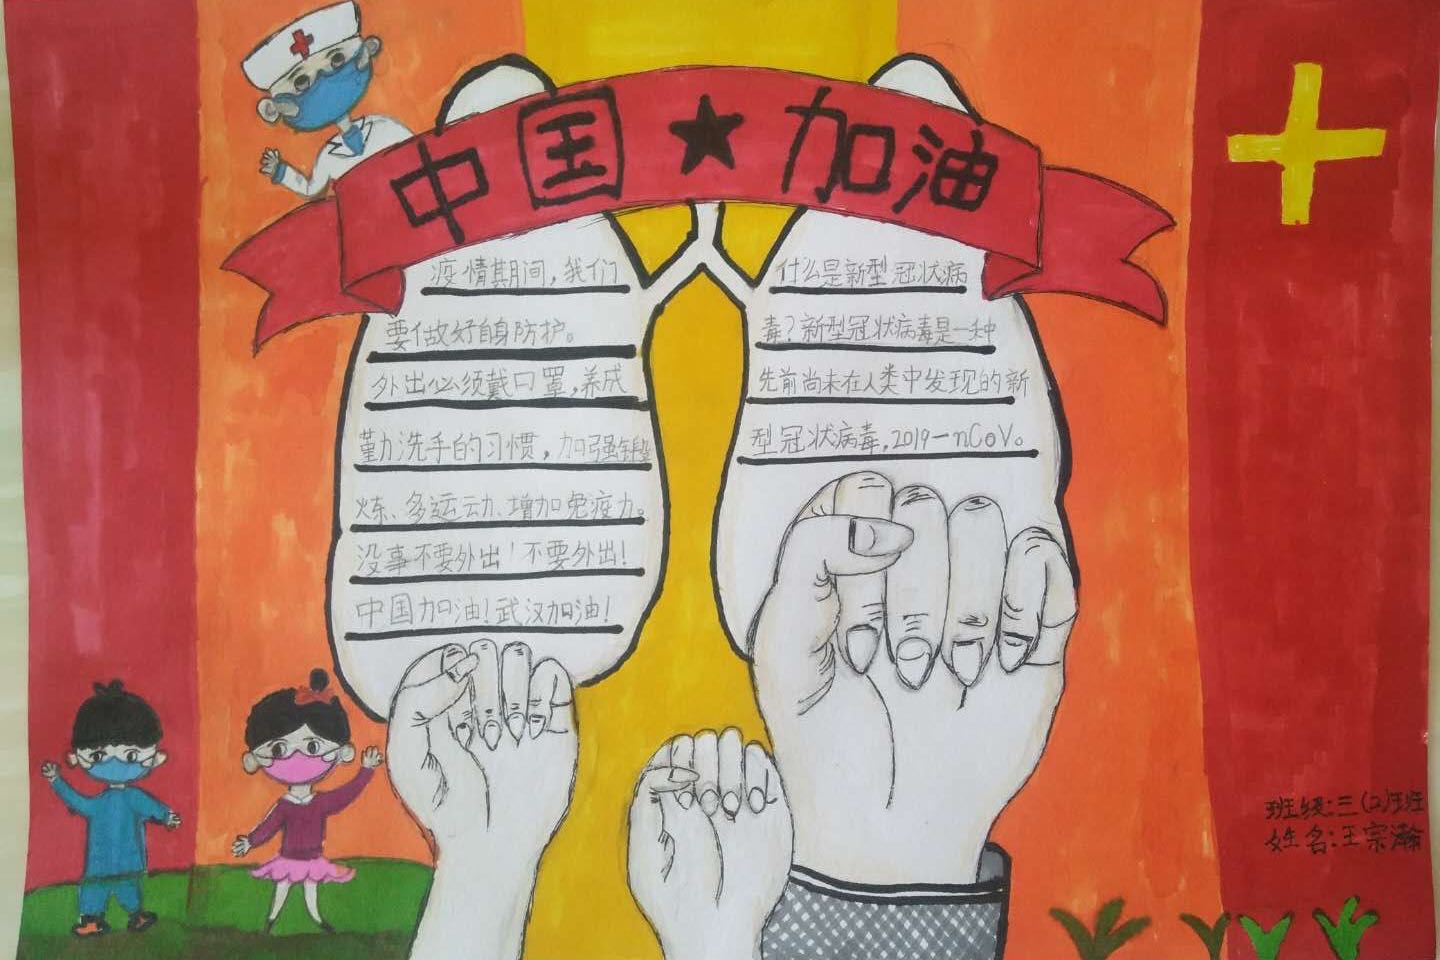 中国★加油
疫情期间，我们
要做好自身防护。
外出必须戴口罩，养成
勤洗手的习惯，加强锻
炼、多运动、增加免疫力。
没事不要外出！不要外出！
中国加油！武汉加油！
什么是新型冠状病
毒？新型冠状病毒是一种
先前尚未在人类中发现的新
型冠状病毒，2019-nCoV。
班级：三（2）班
姓名：王宗瀚